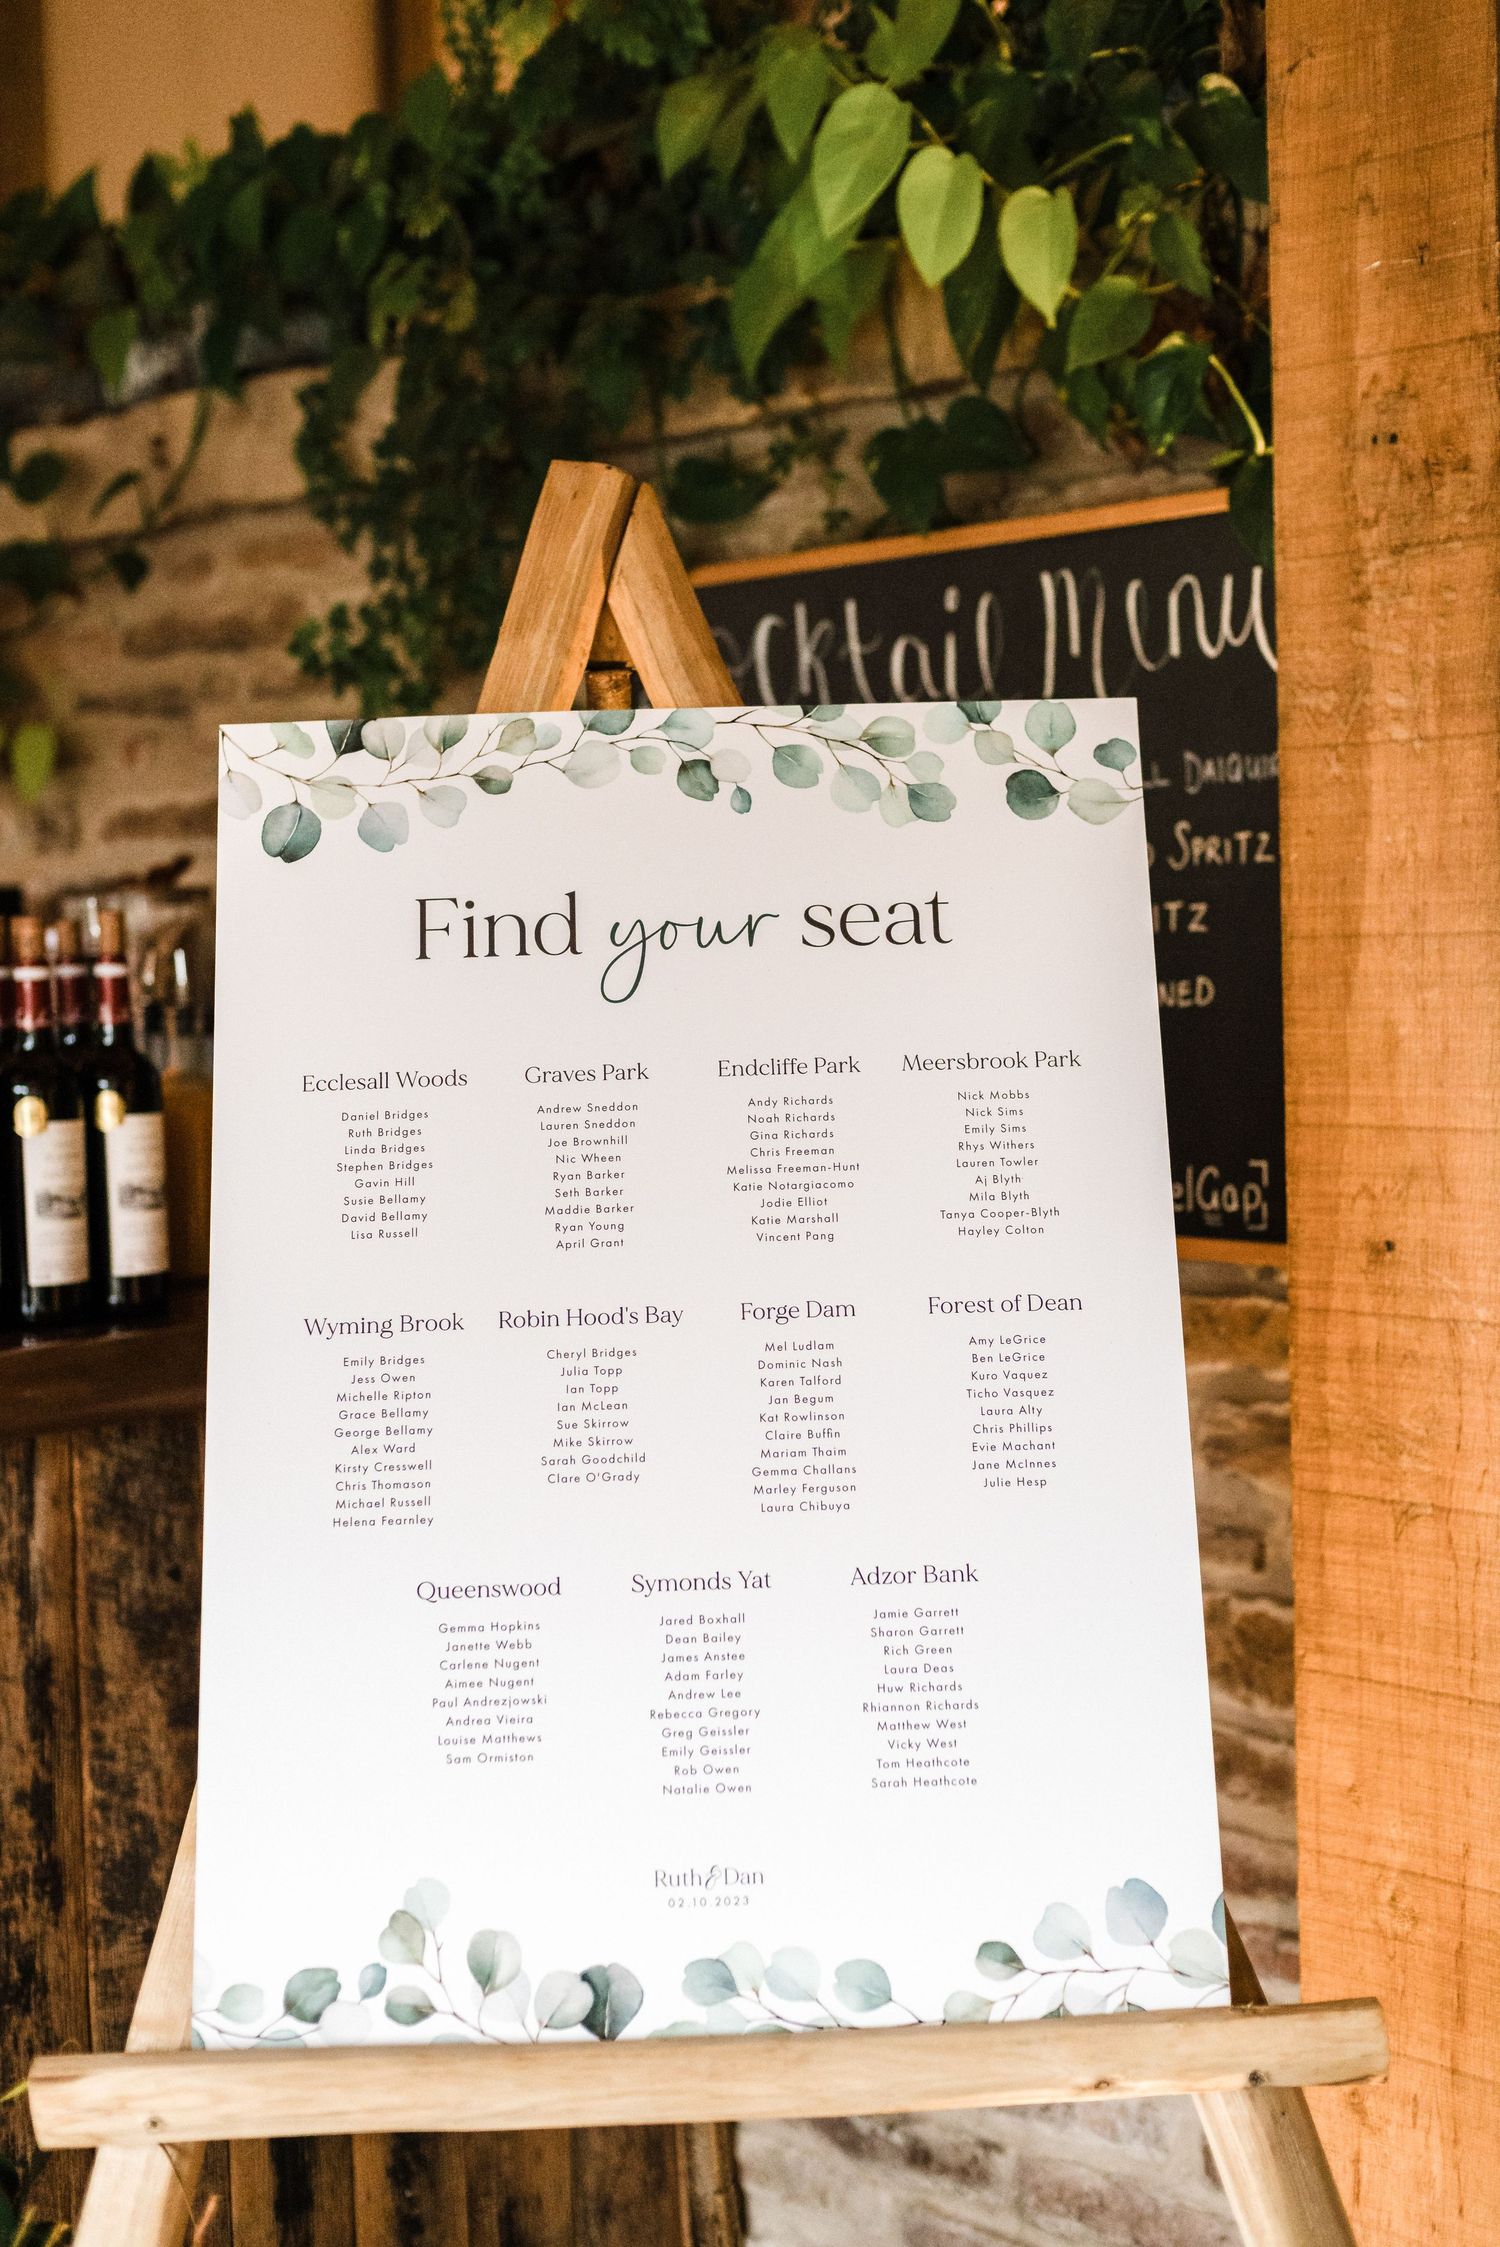 Cocktail Menu
Daiquiri
Spritz
elGap
Find your seat
Ecclesall Woods
Daniel Bridges
Ruth Bridges
Linda Bridges
Stephen Bridges
Gavin Hill
Susie Bellamy
David Bellamy
Lisa Russell
Graves Park
Andrew Sneddon
Lauren Sneddon
Joe Brownhill
Nic Wheen
Ryan Barker
Seth Barker
Maddie Barker
Ryan Young
April Grant
Endcliffe Park
Andy Richards
Noah Richards
Gina Richards
Chris Freeman
Melissa Freeman-Hunt
Katie Notargiacomo
Jodie Elliot
Katie Marshall
Vincent Pang
Meersbrook Park
Nick Mobbs
Nick Sims
Emily Sims
Rhys Withers
Lauren Towler
Aj Blyth
Mila Blyth
Tanya Cooper-Blyth
Hayley Colton
Wyming Brook
Emily Bridges
Jess Owen
Michelle Ripton
Grace Bellamy
George Bellamy
Alex Ward
Kirsty Cresswell
Chris Thomason
Michael Russell
Helena Fearnley
Robin Hood's Bay
Cheryl Bridges
Julia Topp
Ian Topp
Ian McLean
Sue Skirrow
Mike Skirrow
Sarah Goodchild
Clare O'Grady
Forge Dam
Mel Ludlam
Dominic Nash
Karen Talford
Jan Begum
Kat Rowlinson
Claire Buffin
Mariam Thaim
Gemma Challans
Marley Ferguson
Laura Chibuya
Forest of Dean
Amy LeGrice
Ben LeGrice
Kuro Vaquez
Ticho Vasquez
Laura Alty
Chris Phillips
Evie Machant
Jane McInnes
Julie Hesp
Queenswood
Gemma Hopkins
Janette Webb
Carlene Nugent
Aimee Nugent
Paul Andrezjowski
Andrea Vieira
Louise Matthews
Sam Ormiston
Symonds Yat
Jared Boxhall
Dean Bailey
James Anstee
Adam Farley
Andrew Lee
Rebecca Gregory
Greg Geissler
Emily Geissler
Rob Owen
Natalie Owen
Adzor Bank
Jamie Garrett
Sharon Garrett
Rich Green
Laura Deas
Huw Richards
Rhiannon Richards
Matthew West
Vicky West
Tom Heathcote
Sarah Heathcote
Ruth & Dan
02.10.2023